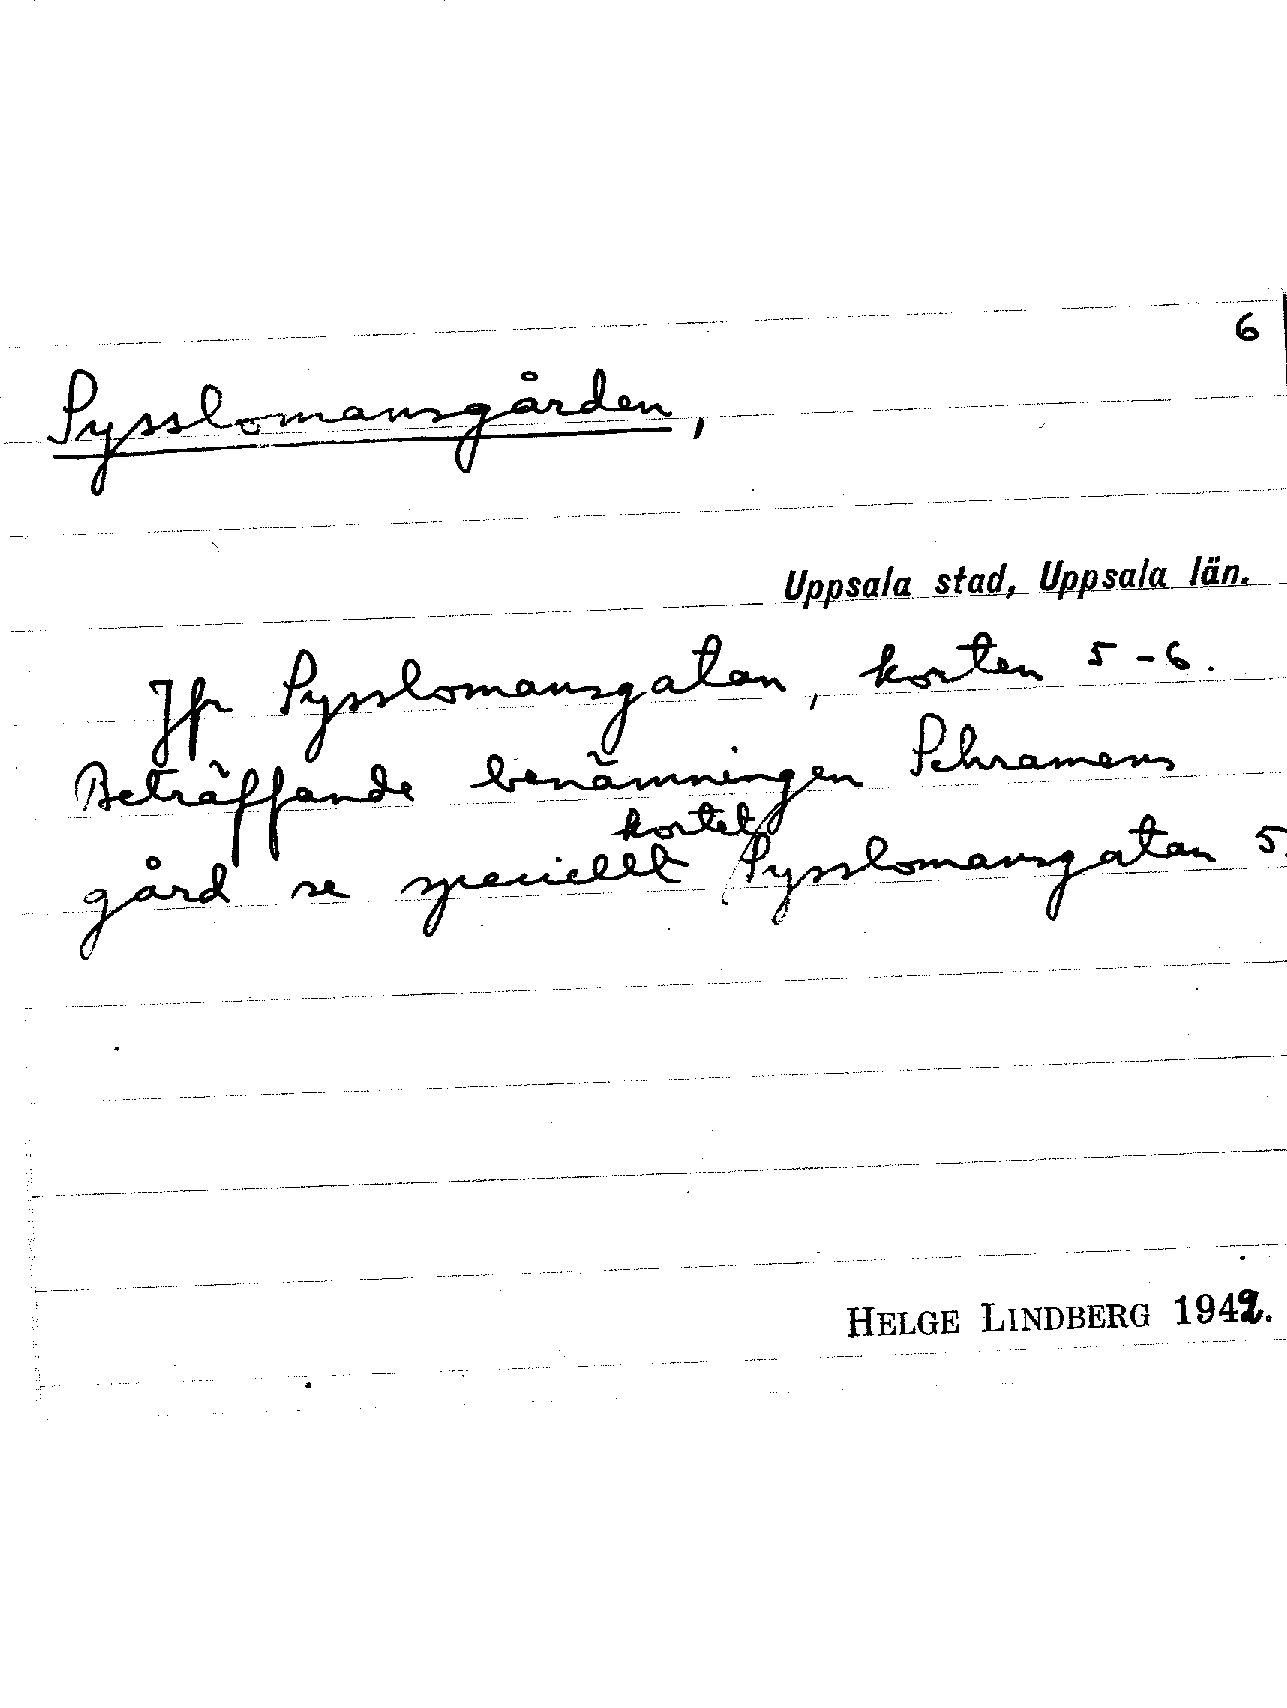 6
Pysslomansgården,
Uppsala stad, Uppsala län.
Jfr Pysslomansgatan, korten 5-6.
Beträffande benämningen Schramens
gård se speciellt kortet Pysslomansgatan 5.
HELGE LINDBERG 1942.